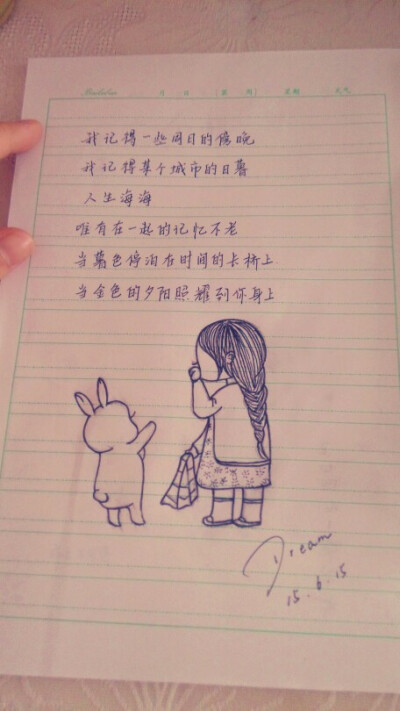 月 日
星期
天气
我记得一些周日的傍晚
我记得某个城市的日暮
人生海海
唯有在一起的记忆不老
当暮色停泊在时间的长桥上
当金色的夕阳照耀到你身上
Dream
15.6.15